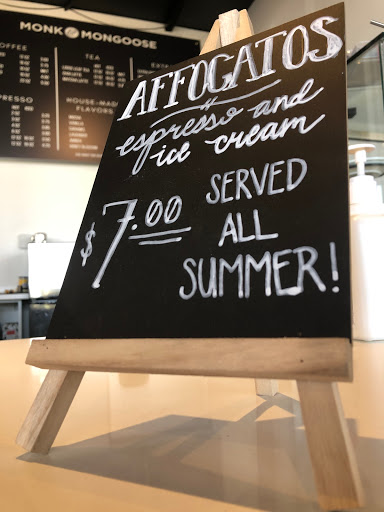 MONK & MONGOOSE
COFFEE
TEA
ESPRESSO
HOUSE-MADE
FLAVORS
AFFOGATOS
espresso and
ice cream
$7.00
SERVED
ALL
SUMMER!